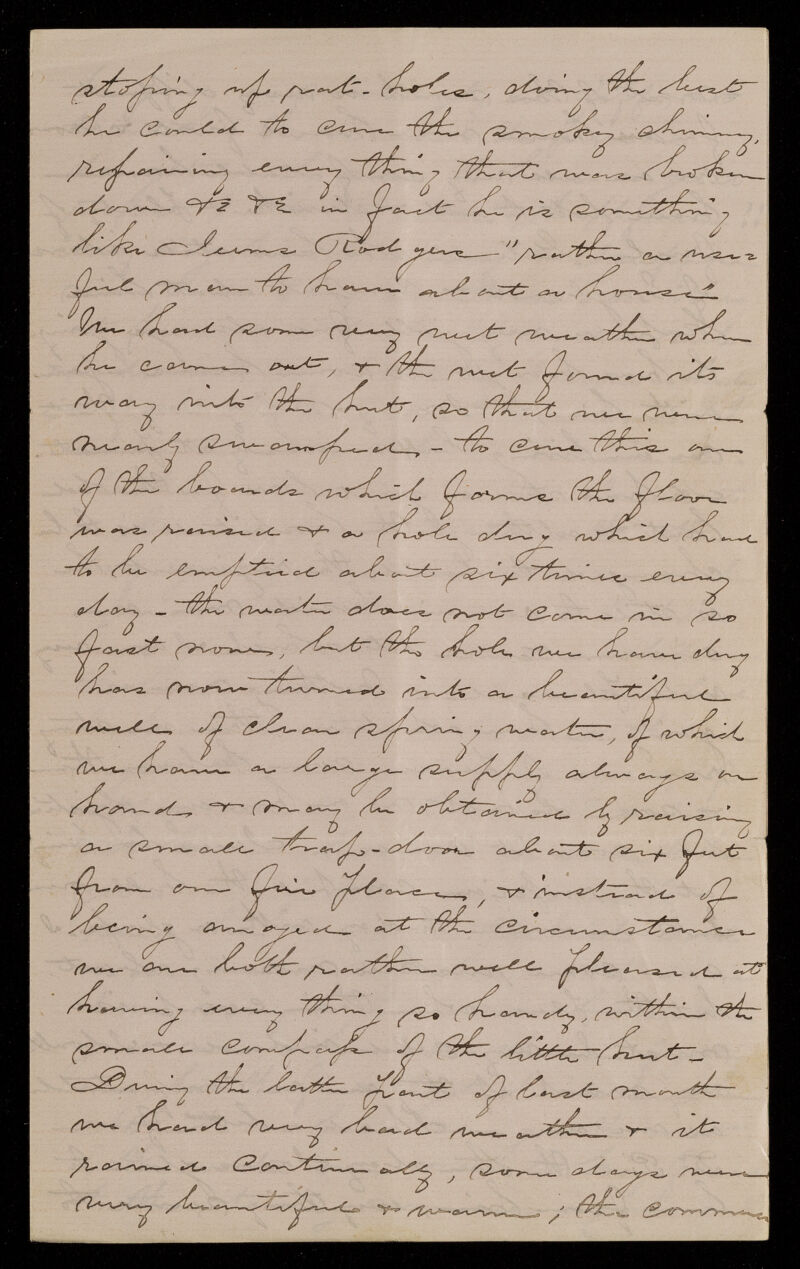 stoping up rat-holes, doing the best
he could to cure the smoky chimney,
repairing every thing that was broken
down &c &c in fact he is something
like Jeems Rodgers "rather a use=
ful man to have about a house"
We had some very wet weather when
he came out, & the wet found its
way into the hut, so that we were
nearly swamped - to cure this one
of the boards which forms the floor
was raised & a hole dug which had
to be emptied about six times every
day - the water does not come in so
fast now, but the hole we have dug
has now turned into a beautiful
well of clear spring water, of which
we have a large supply always on
hand & may be obtained by raising
a small trap-door about six feet
from our fire place, & instead of
being anoyed at the circumstance
we are both rather well pleased at
having every thing so handy, within the
small compass of the little hut -
During the latter part of last month
we had very bad weather & it
rained continually, some days were
very beautiful & warm ; the commen